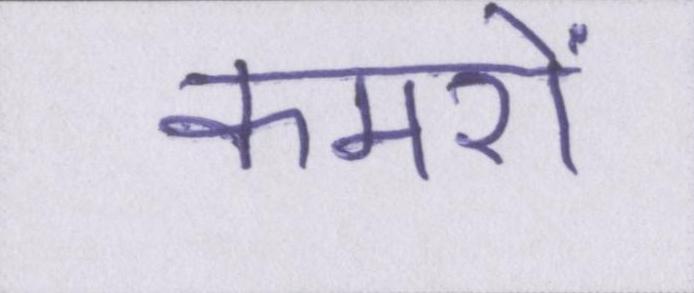 कमरों